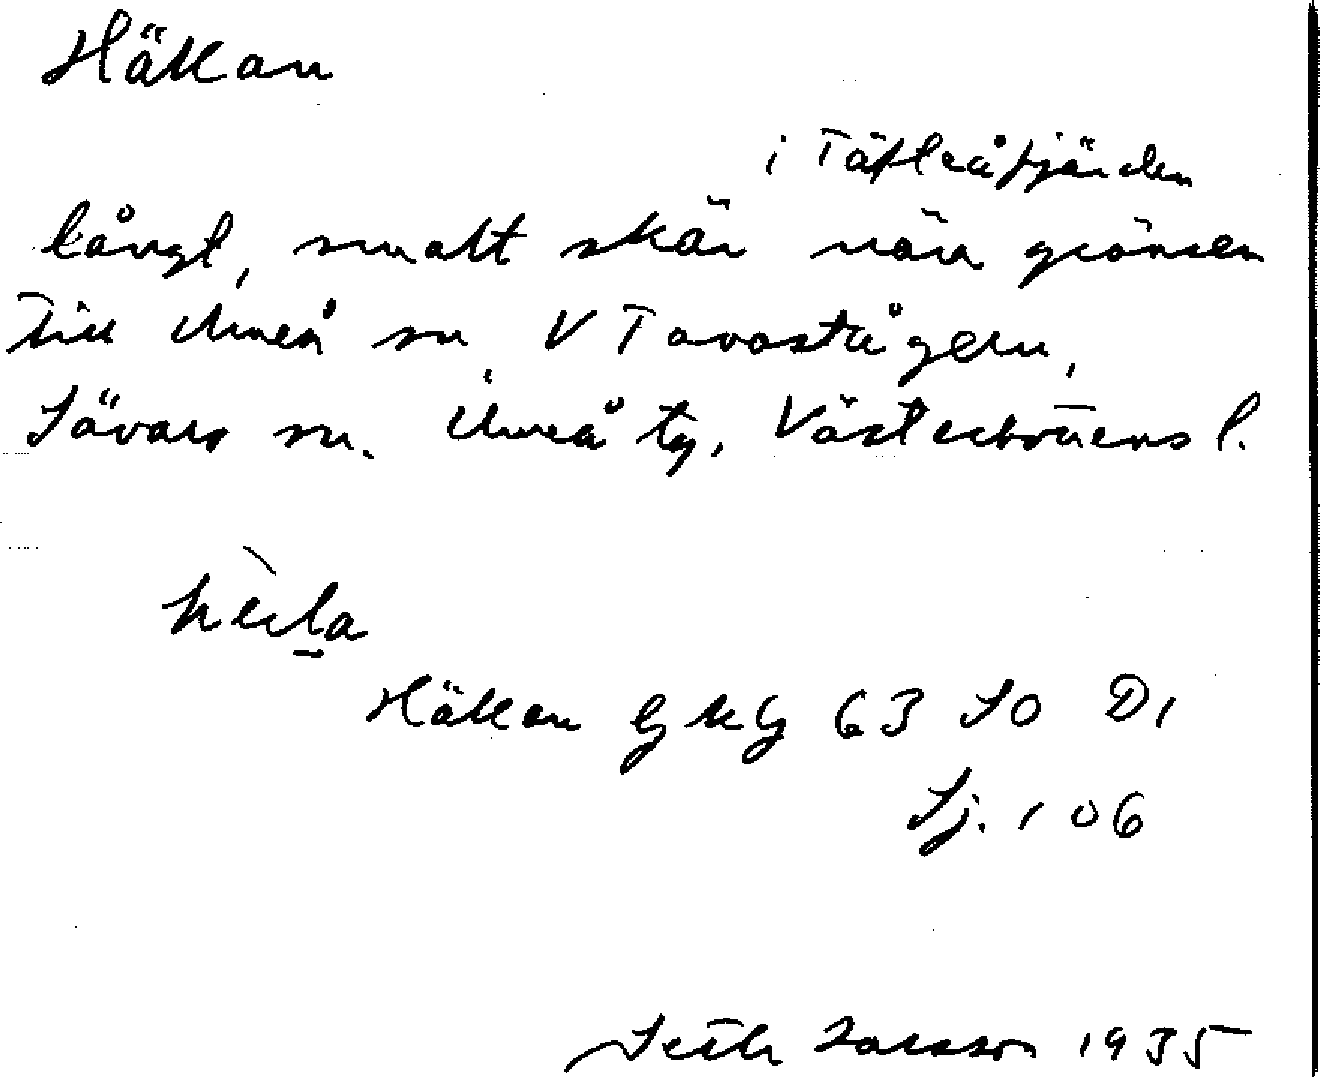 Hällan
i Täfteåfjärden
långt, smalt skär nära gränsen
till Umeå sn, V Tavastågern,
Sävars sn. Umeå tg, Västerbottens l.
Hällan GKG 63 SO D1
Sj. 106
Seth Larsson 1935